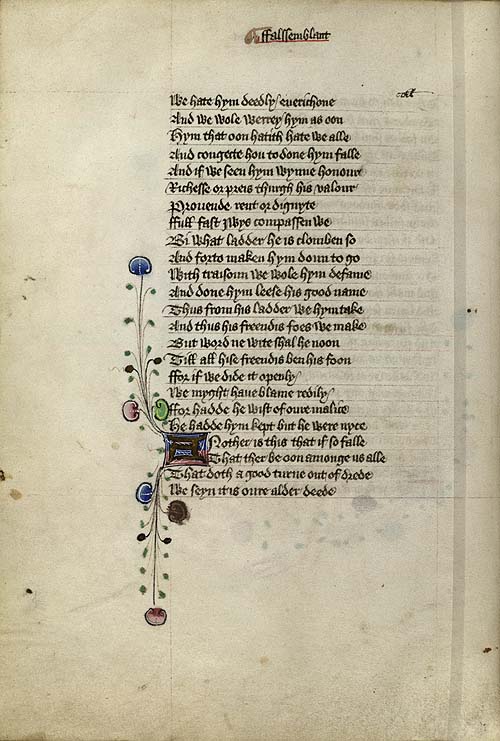 ffalssemblant
We hate hym deedly / euerichone
And we wole werrey hym as oon
Hym that oon hatith hate we alle
And congecte hou to done hym falle
And if we seen hym wynne honour
Richesse or preis thurgh his valour
Prouende rent or dignyte
ffull fast Iwys compassen we
Bi what ladder he is clomben so
And forto maken hym doun to go
With traisoun we wole hym defame
And done hym leese his good name
Thus from his ladder we hym take
And thus his freendis foes we make
But word ne wite shal he noon
Till all hise freendis ben his foon
ffor if we dide it openly /
We myght haue blame redily /
ffor hadde he wist of oure malice
He hadde hym kept but he were nyce
A Nother is this that if so falle
That ther be oon amonge us alle
That doth a good turne out of drede
We seyn it is oure alder deede